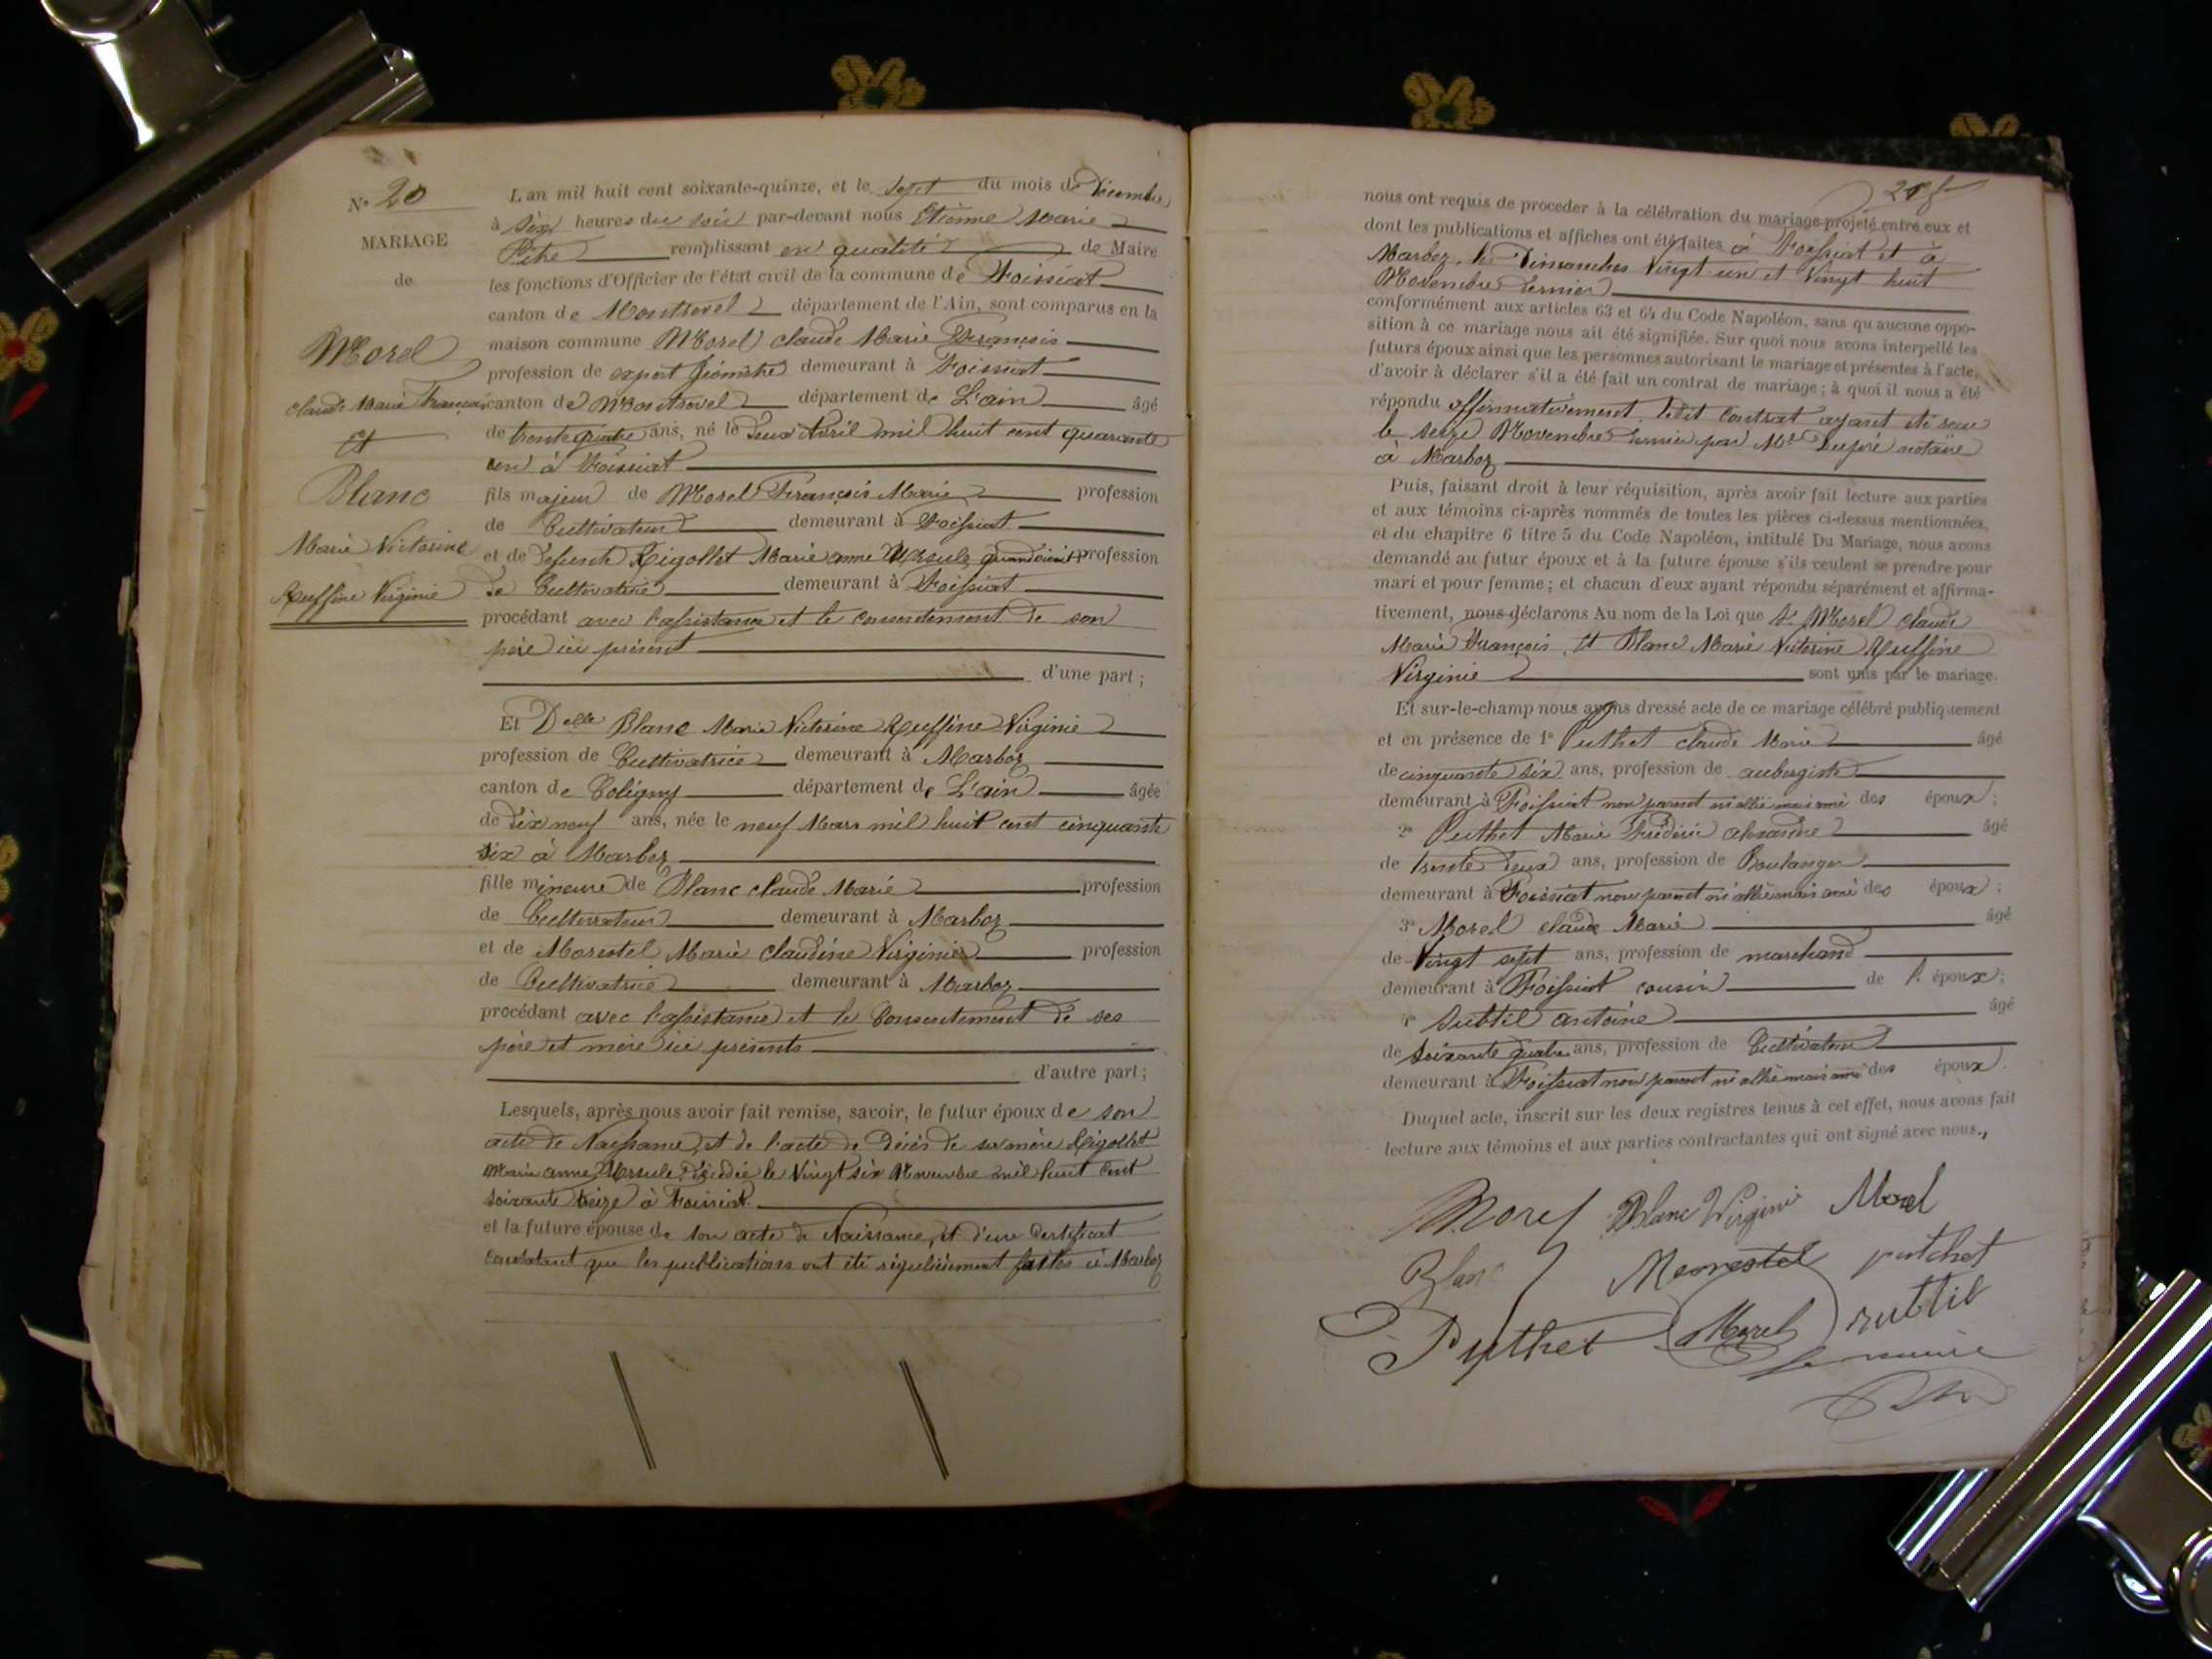 N° 20
MARIAGE
de
Morel
Claude Marie François
Et
Blanc
Marie Victorine
Ruffine Virginie
L'an mil huit cent soixante-quinze, et le sept du mois de Décembre
à six heures du soir par-devant nous Etienne Marie
remplissant en qualité de Maire
les fonctions d'Officier de l'état civil de la commune de Foissiat
canton de Montrevel département de l'Ain, sont comparus en la
maison commune Morel Claude Marie François
profession de expert Géomètre demeurant à Foissiat
canton de Montrevel département de L'ain âgé
de trente quatre ans, né le deux Avril mil huit cent quarante
un à Foissiat
fils majeur de Morel François Marie profession
de Cultivateur demeurant à Foissiat
et de défunte Rigollet Marie anne Ursule quand vivait profession
de Cultivatrice demeurant à Foissiat
procédant avec l'assistance et le consentement de son
père ici présent
d'une part;
Et Delle Blanc Marie Victorine Ruffine Virginie
profession de Cultivatrice demeurant à Marboz
canton de Coligny département de L'ain âgée
de dix neuf ans, née le neuf Mars mil huit cent cinquante
six à Marboz
fille mineure de Blanc claude Marie profession
de Cultivateur demeurant à Marboz
et de Morestel Marie claudine Virginie profession
de Cultivatrice demeurant à Marboz
procédant avec l'assistance et le Consentement de ses
père et mère ici présents
d'autre part;
Lesquels, après nous avoir fait remise, savoir, le futur époux de son
acte de Naissance, et de l'acte de Décès de sa mère Rigollet
Marie anne Ursule décédée le Vingt six Novembre mil huit cent
soixante treize à Foissiat
et la future épouse de son acte de Naissance, et d'un Certificat
constatant que les publications ont été régulièrement faites à Marboz
nous ont requis de proceder à la célébration du mariage projeté entre eux et
dont les publications et affiches ont été faites à Foissiat et à
Marboz, les Dimanches Vingt un et Vingt huit
Novembre dernier
conformément aux articles 63 et 64 du Code Napoléon, sans qu'aucune oppo-
sition à ce mariage nous ait été signifiée. Sur quoi nous avons interpellé les
futurs époux ainsi que les personnes autorisant le mariage et présentes à l'acte,
d'avoir à déclarer s'il a été fait un contrat de mariage; à quoi il nous a été
répondu affirmativement. Ledit Contrat ayant été reçu
le seize Novembre dernier par Me notaire
à Marboz
Puis, faisant droit à leur réquisition, après avoir fait lecture aux parties
et aux témoins ci-après nommés de toutes les pièces ci-dessus mentionnées,
et du chapitre 6 titre 5 du Code Napoléon, intitulé Du Mariage, nous avons
demandé au futur époux et à la future épouse s'ils veulent se prendre pour
mari et pour femme; et chacun d'eux ayant répondu séparément et affirma-
tivement, nous déclarons Au nom de la Loi que Sr Morel Claude
Marie François et Blanc Marie Victorine Ruffine
Virginie sont unis par le mariage.
Et sur-le-champ nous avons dressé acte de ce mariage célébré publiquement
et en présence de 1° Puthet claude Marie âgé
de cinquante six ans, profession de aubergiste
demeurant à Foissiat non parent ni allié mais ami des époux;
2° Puthet Marie Frédéric alexandre âgé
de trente deux ans, profession de Boulanger
demeurant à Foissiat non parent ni allié mais ami des époux;
3° Morel Claude Marie âgé
de Vingt sept ans, profession de marchand
demeurant à Foissiat cousin de l'époux;
4° Subtil antoine âgé
de soixante quatre ans, profession de Cultivateur
demeurant à Foissiat non parent ni allié mais ami des époux.
Duquel acte, inscrit sur les deux registres tenus à cet effet, nous avons fait
lecture aux témoins et aux parties contractantes qui ont signé avec nous.,
Morel Blanc Virginie Morel
Blanc Morestel putthet
Puthet Morel subtil
Le maire